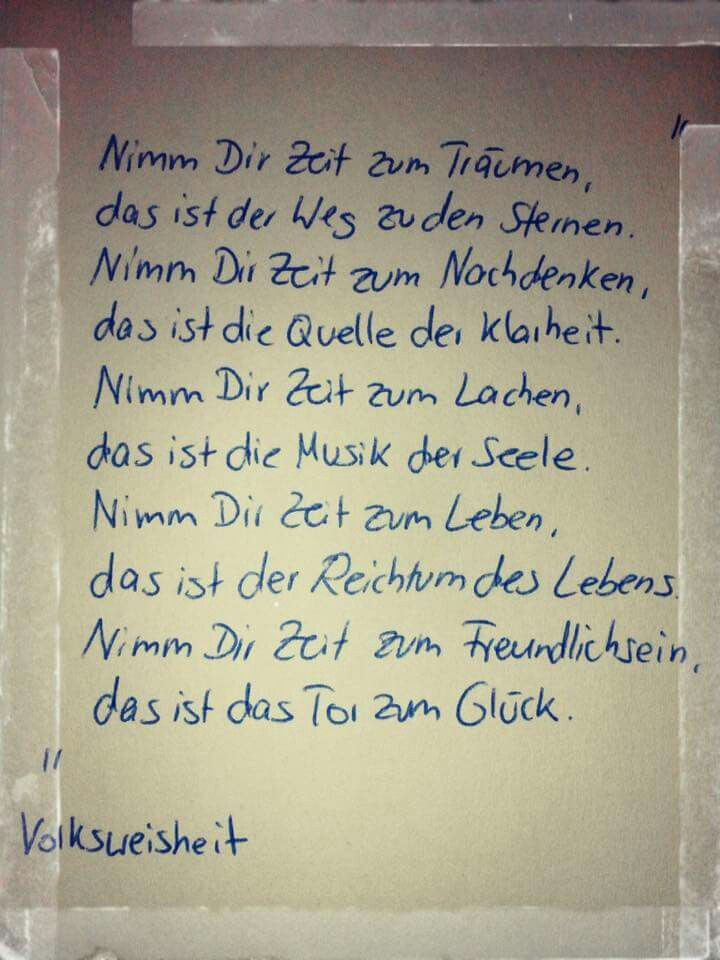 "
Nimm Dir Zeit zum Träumen,
das ist der Weg zu den Sternen.
Nimm Dir Zeit zum Nachdenken,
das ist die Quelle der Klarheit.
Nimm Dir Zeit zum Lachen,
das ist die Musik der Seele.
Nimm Dir Zeit zum Leben,
das ist der Reichtum des Lebens.
Nimm Dir Zeit zum Freundlichsein,
das ist das Tor zum Glück.
"
Volksweisheit